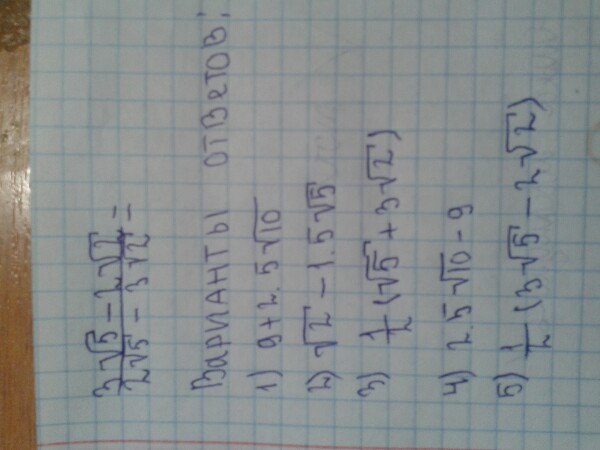 3√5 - 2√2 / 2√5 - 3√2 =
Варианты ответов:
1) 9+2.5√10
2) √2 - 1.5√5
3) 1/2 (√5 + 3√2)
4) 2.5√10 - 9
5) 1/2 (3√5 - 2√2)